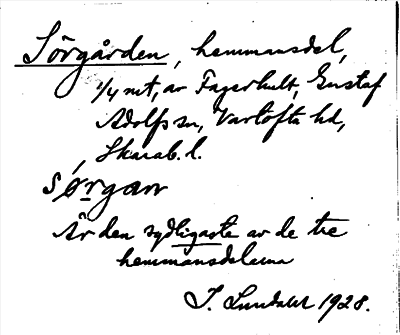 Sörgården, hemmansdel,
1/4 mt, av Fagerhult, Gustaf
Adolfs sn, Vartofta hd,
Skarab. l.
sø̀rgaṇ
Är den sydligaste av de tre
hemmansdelarna
J. Lundahl 1928.